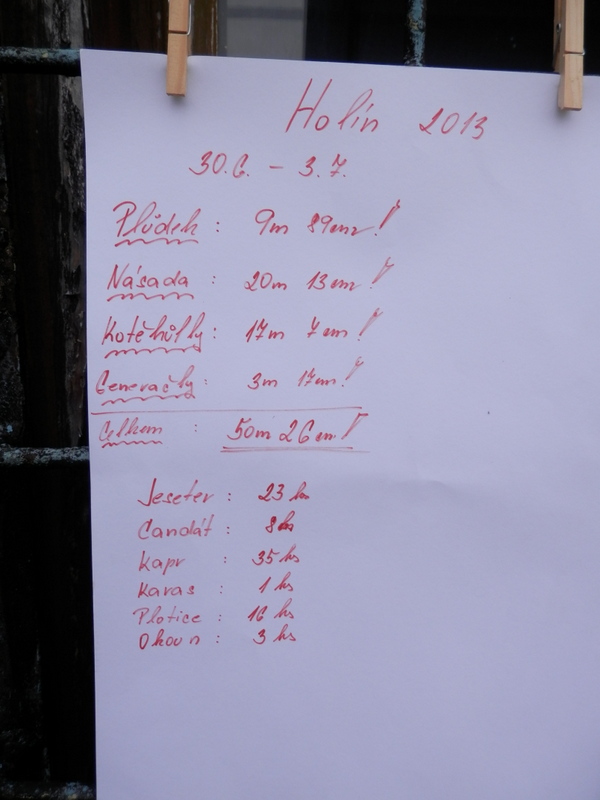 Holín 2013
30.6. - 3.7.
Plůdek : 9m 89cm!
Násada : 20m 13cm!
Kotěhůlky : 17m 7cm!
Generačky : 3m 17cm!
Celkem : 50m 26cm!
Jeseter : 23 ks
Candát : 8ks
Kapr : 35 ks
Karas : 1 ks
Plotice : 16 ks
Okoun : 3 ks